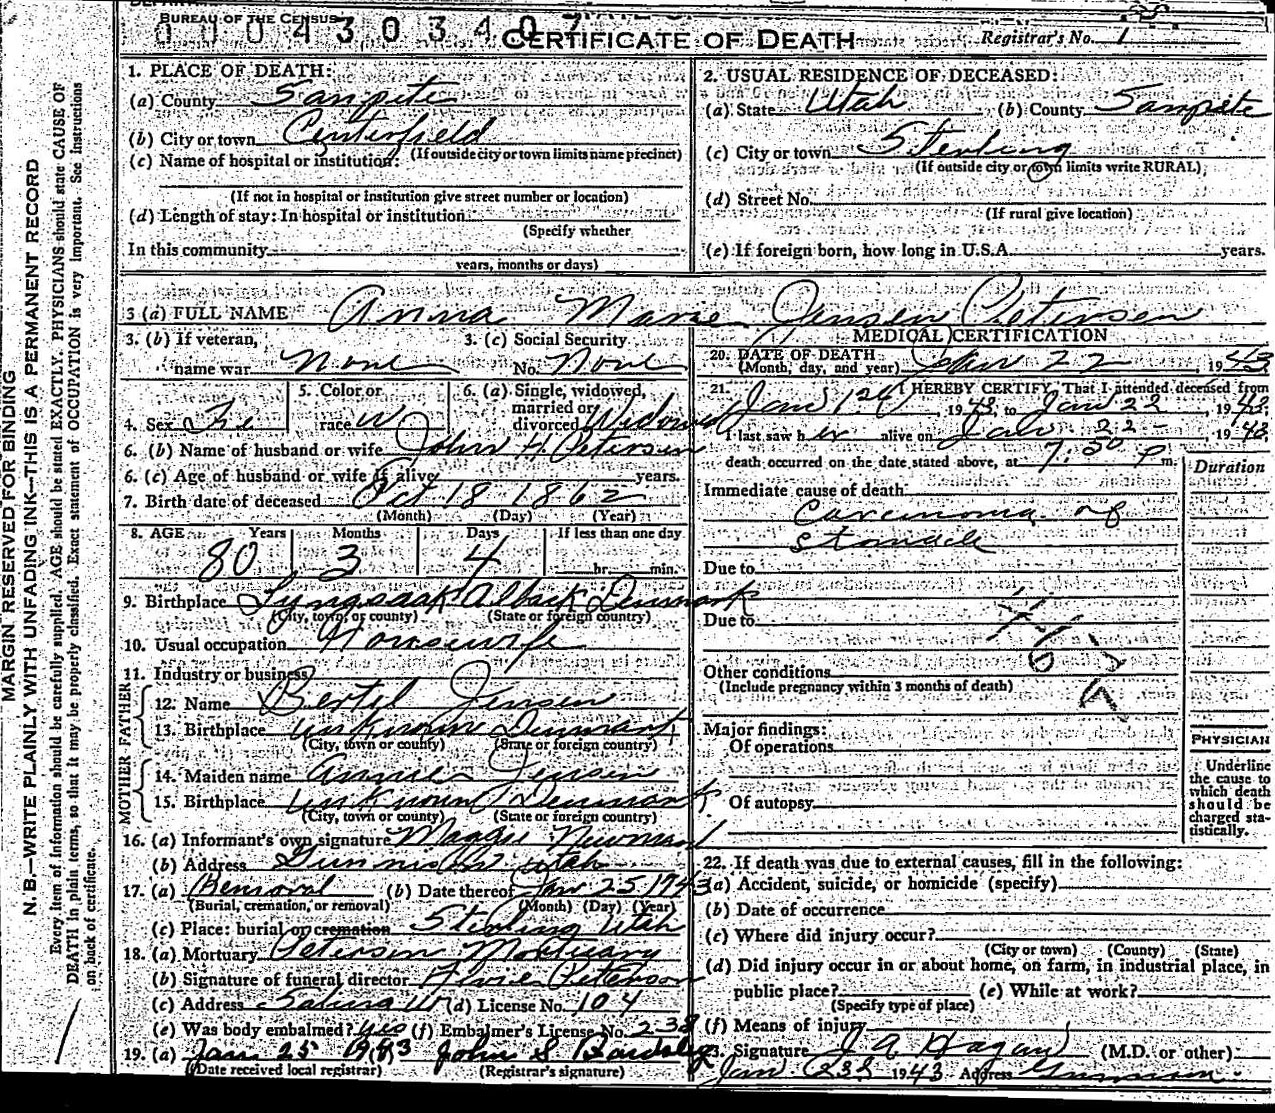 BUREAU OF THE CENSUS
0 0 0 4 3 0 3 4 0
CERTIFICATE OF DEATH
Registrar's No. 1
MARGIN RESERVED FOR BINDING
N. B.—WRITE PLAINLY WITH UNFADING INK—THIS IS A PERMANENT RECORD
Every item of information should be carefully supplied. AGE should be stated EXACTLY. PHYSICIANS should state CAUSE OF
DEATH in plain terms, so that it may be properly classified. Exact statement of OCCUPATION is very important. See Instructions
on back of certificate.
1. PLACE OF DEATH:
(a) County Sanpete
(b) City or town Centerfield
(If outside city or town limits name precinct)
(c) Name of hospital or institution:
(If not in hospital or institution give street number or location)
(d) Length of stay: In hospital or institution
(Specify whether
In this community
years, months or days)
2. USUAL RESIDENCE OF DECEASED:
(a) State Utah (b) County Sanpete
(c) City or town Sterling
(If outside city or town limits write RURAL)
(d) Street No.
(If rural give location)
(e) If foreign born, how long in U.S.A. years.
3 (a) FULL NAME Anna Marie Jensen Petersen
3. (b) If veteran,
name war None
3. (c) Social Security
No. None
4. Sex Fe
5. Color or
race W
6. (a) Single, widowed,
married or
divorced Widowed
6. (b) Name of husband or wife John H. Petersen
6. (c) Age of husband or wife if alive years.
7. Birth date of deceased Oct 18 1862
(Month) (Day) (Year)
8. AGE Years Months Days If less than one day
80 3 4 hr. min.
9. Birthplace Denmark
(City, town, or county) (State or foreign country)
10. Usual occupation Housewife
11. Industry or business
FATHER
12. Name Bertel Jensen
13. Birthplace Unknown Denmark
(City, town or county) (State or foreign country)
MOTHER
14. Maiden name Jensen
15. Birthplace Unknown Denmark
(City, town or county) (State or foreign country)
16. (a) Informant's own signature Maggie Newman
(b) Address Gunnison Utah
17. (a) Removal (b) Date thereof Jan 25 1943
(Burial, cremation, or removal) (Month) (Day) (Year)
(c) Place: burial or cremation Sterling Utah
18. (a) Mortuary Petersen Mortuary
(b) Signature of funeral director Peterson
(c) Address Salina Ut (d) License No. 104
(e) Was body embalmed? yes (f) Embalmer's License No. 238
19. (a) Jan 25 1943 (b) John S. Bardsley
(Date received local registrar) (Registrar's signature)
MEDICAL CERTIFICATION
20. DATE OF DEATH
(Month, day, and year) Jan 22, 1943
21. I HEREBY CERTIFY, That I attended deceased from
Jan 1st, 1943, to Jan 22, 1943.
I last saw her alive on Jan 22, 1943.
death occurred on the date stated above, at 7:50 P m.
Duration
Immediate cause of death
Carcinoma of
stomach
Due to
Due to
Other conditions
(Include pregnancy within 3 months of death)
Major findings:
Of operations
Of autopsy
PHYSICIAN
Underline
the cause to
which death
should be
charged sta-
tistically.
22. If death was due to external causes, fill in the following:
(a) Accident, suicide, or homicide (specify)
(b) Date of occurrence
(c) Where did injury occur?
(City or town) (County) (State)
(d) Did injury occur in or about home, on farm, in industrial place, in
public place? (e) While at work?
(Specify type of place)
(f) Means of injury
23. Signature J A Hagan (M.D. or other)
Jan 23 1943 Address Gunnison